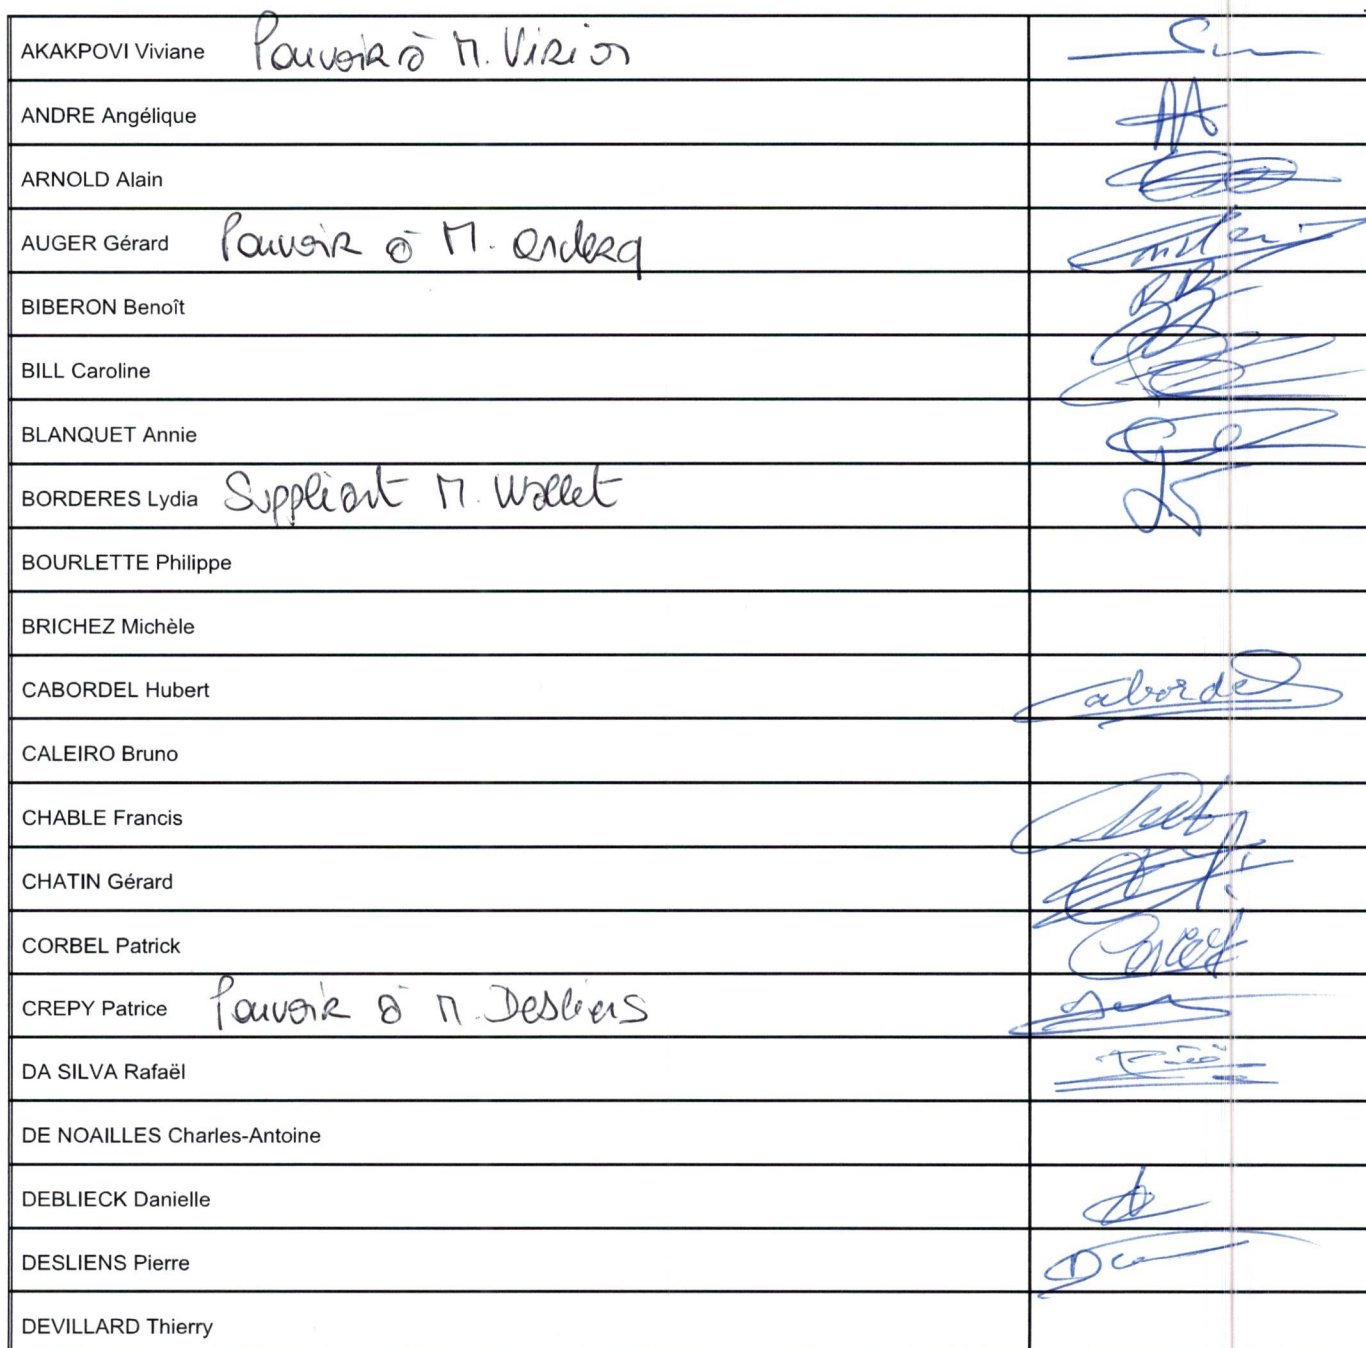 AKAKPOVI Viviane Pouvoir à M.
ANDRE Angélique AA
ARNOLD Alain
AUGER Gérard Pouvoir à M.
BIBERON Benoît BB
BILL Caroline
BLANQUET Annie
BORDERES Lydia Suppléant M. Wallet
BOURLETTE Philippe
BRICHEZ Michèle
CABORDEL Hubert Cabordel
CALEIRO Bruno
CHABLE Francis
CHATIN Gérard
CORBEL Patrick
CREPY Patrice Pouvoir à M. Desliens
DA SILVA Rafaël
DE NOAILLES Charles-Antoine
DEBLIECK Danielle
DESLIENS Pierre
DEVILLARD Thierry